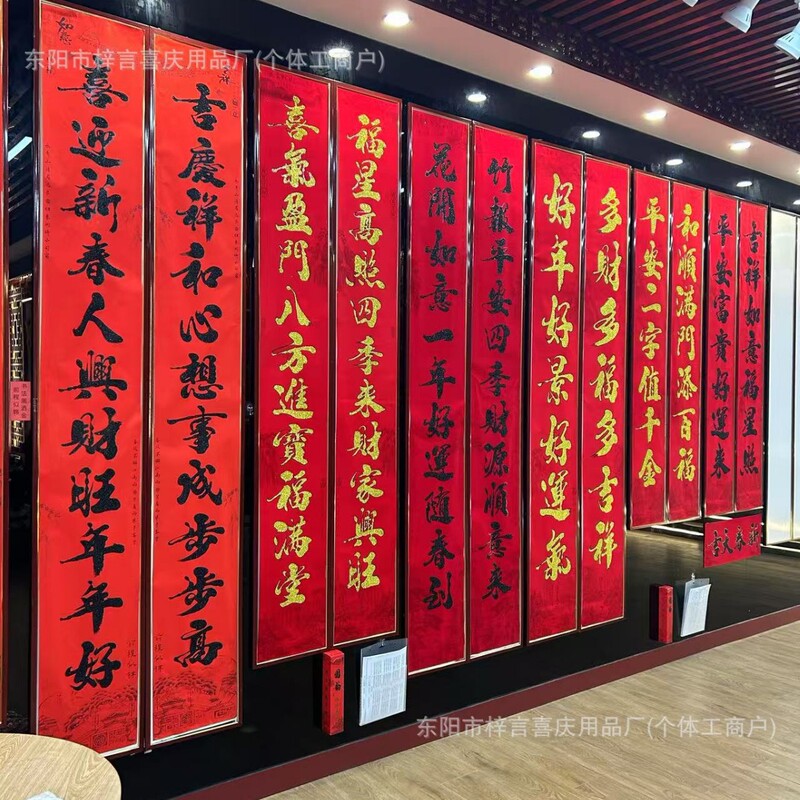 东阳市梓言喜庆用品厂(个体工商户)
喜迎新春人興财旺年年好
吉慶祥和心想事成步步高
喜氣盈門八方進寶福满堂
福星高照四季来财家興旺
花開如意一年好運隨春到
竹報平安四季財源順意来
好年好景好運氣
多财多福多吉祥
平安二字值千金
和順满門添百福
平安富貴好運来
吉祥如意福星照
东阳市梓言喜庆用品厂(个体工商户)